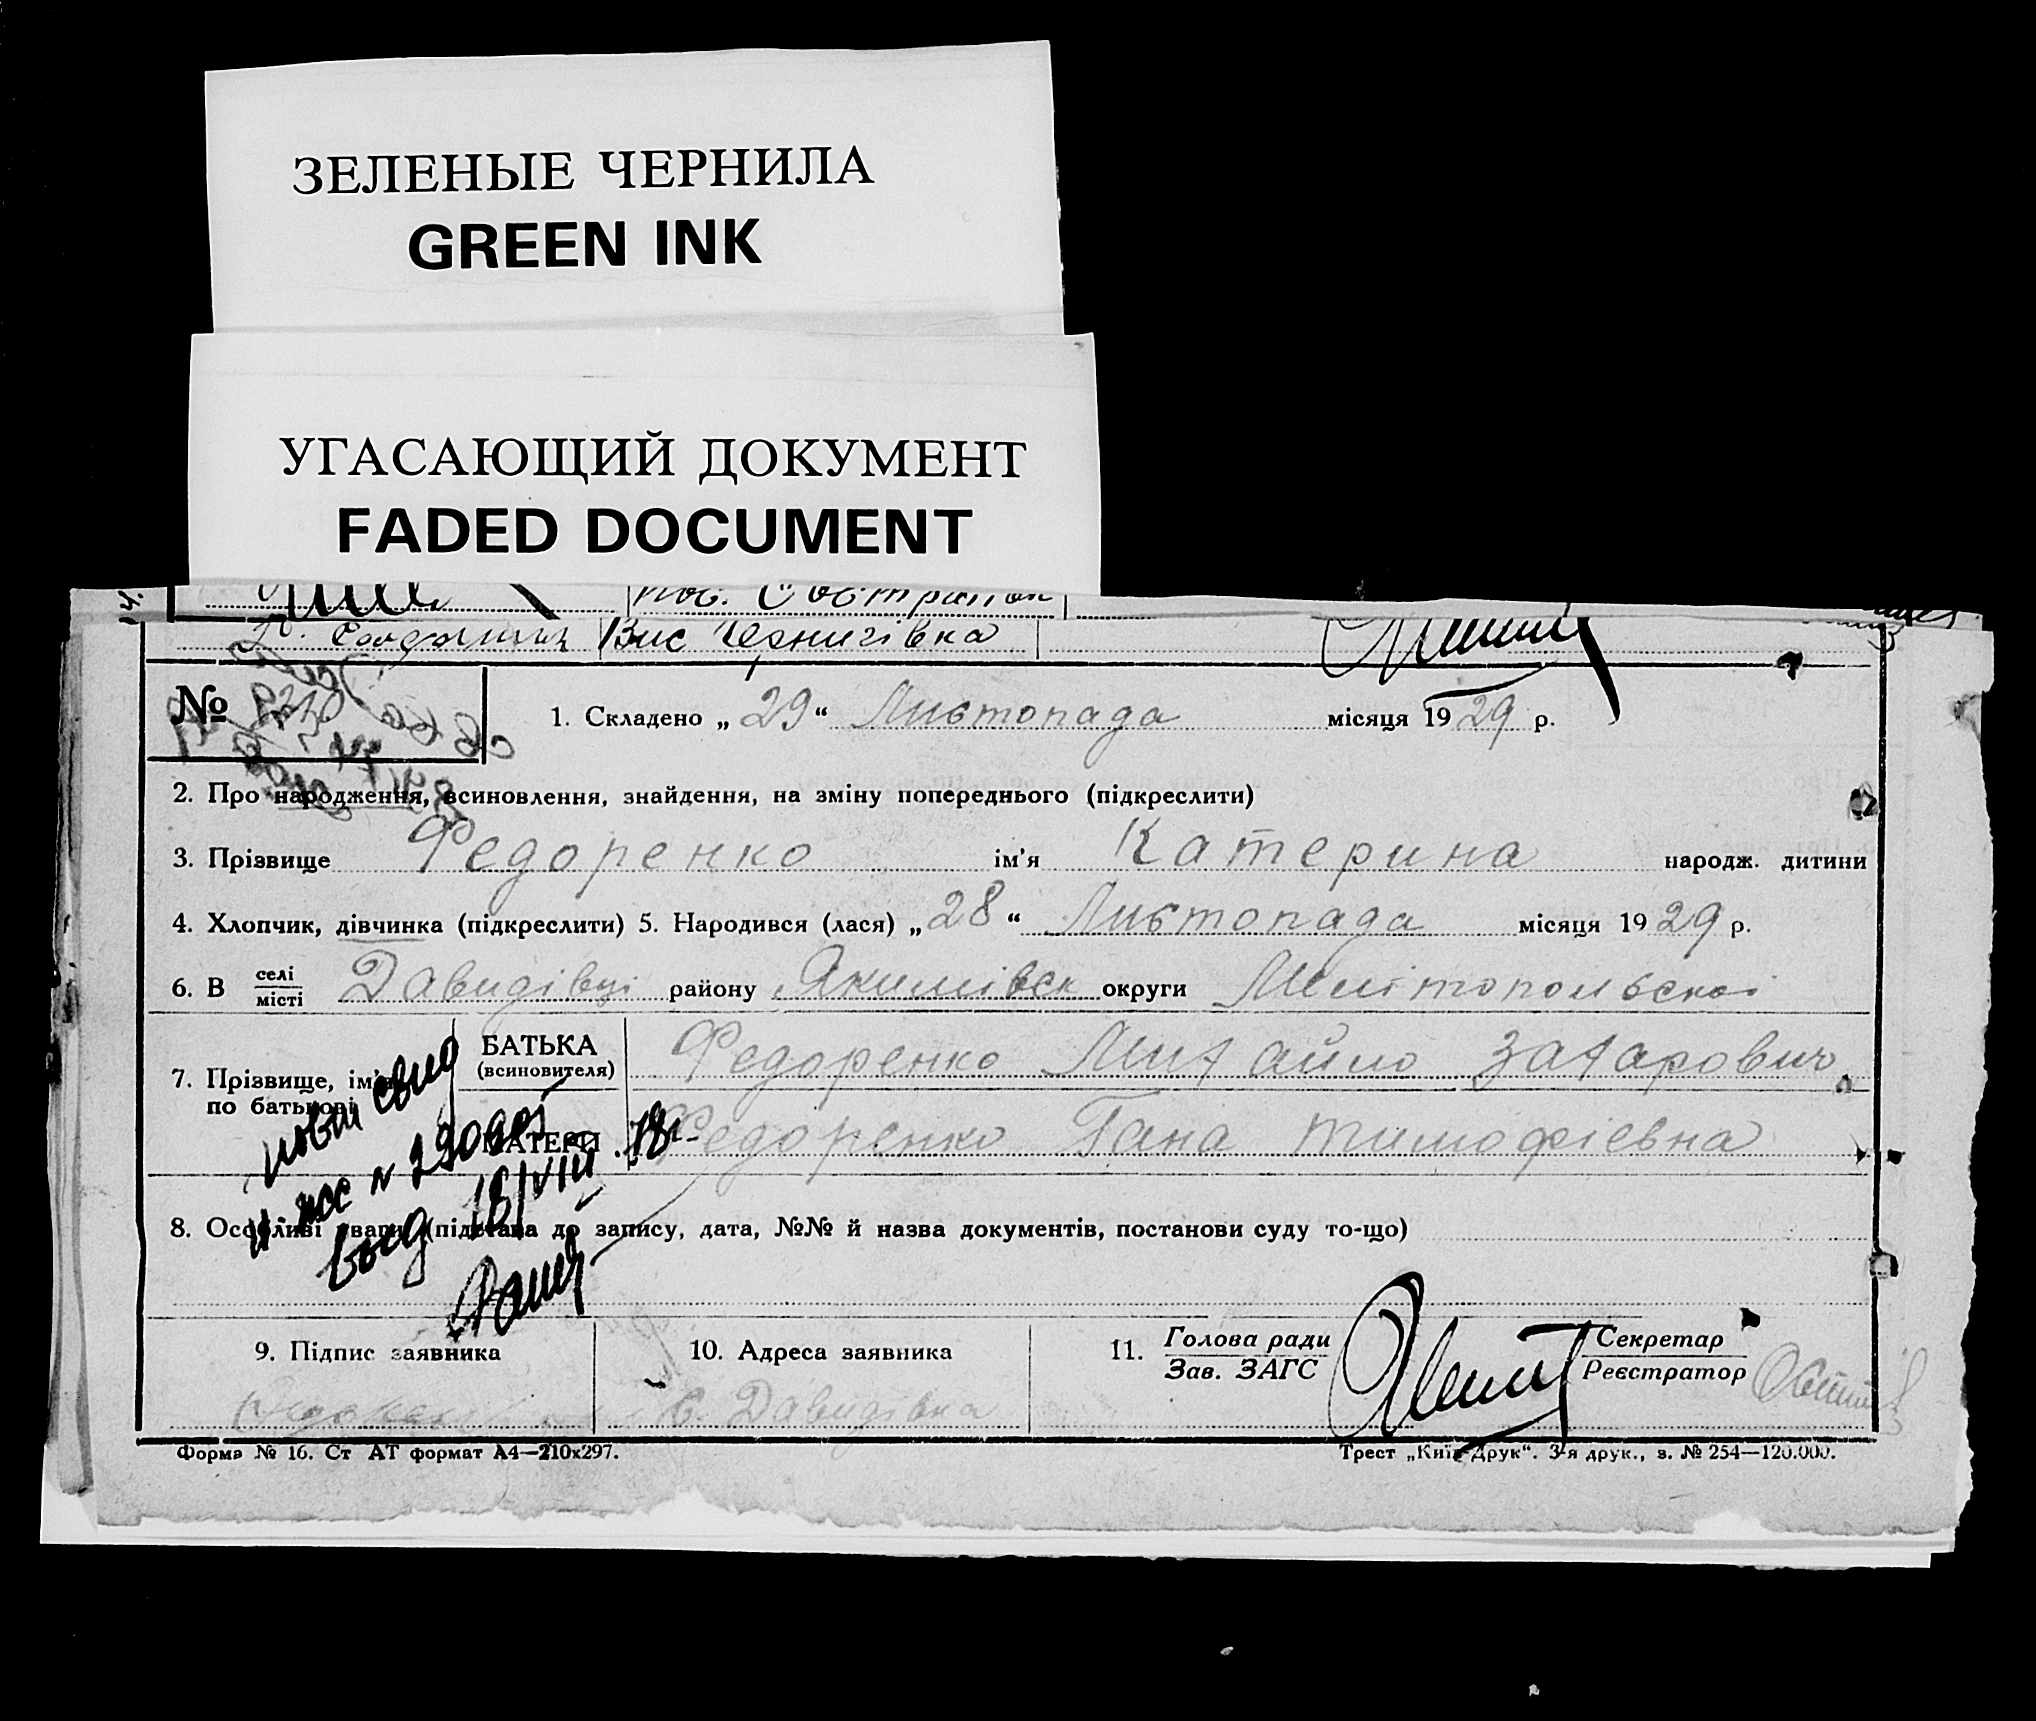 ЗЕЛЕНЫЕ ЧЕРНИЛА
GREEN INK
УГАСАЮЩИЙ ДОКУМЕНТ
FADED DOCUMENT
Вис Чернигівка
№
1. Складено „29“ Листопада місяця 1929 р.
2. Про народження, всиновлення, знайдення, на зміну попереднього (підкреслити)
3. Прізвище Федоренко ім'я Катерина народж. дитини
4. Хлопчик, дівчинка (підкреслити) 5. Народився (лася) „28“ Листопада місяця 1929 р.
6. В селі/місті Давидівці району Якимівськ округи Мелітопольської
7. Прізвище, ім'я по батькові
БАТЬКА (всиновителя) Федоренко Михайло Захарович
МАТЕРИ Федоренко Гана Тимофієвна
8. Особливі уваги (підстава до запису, дата, №№ й назва документів, постанови суду то-що)
9. Підпис заявника
10. Адреса заявника
с. Давидівка
11. Голова ради/Зав. ЗАГС
Секретар/Реєстратор
Форма № 16. Ст АТ формат А4—210х297.
Трест „Київ-Друк“. 3-я друк., з. № 254—120.000.